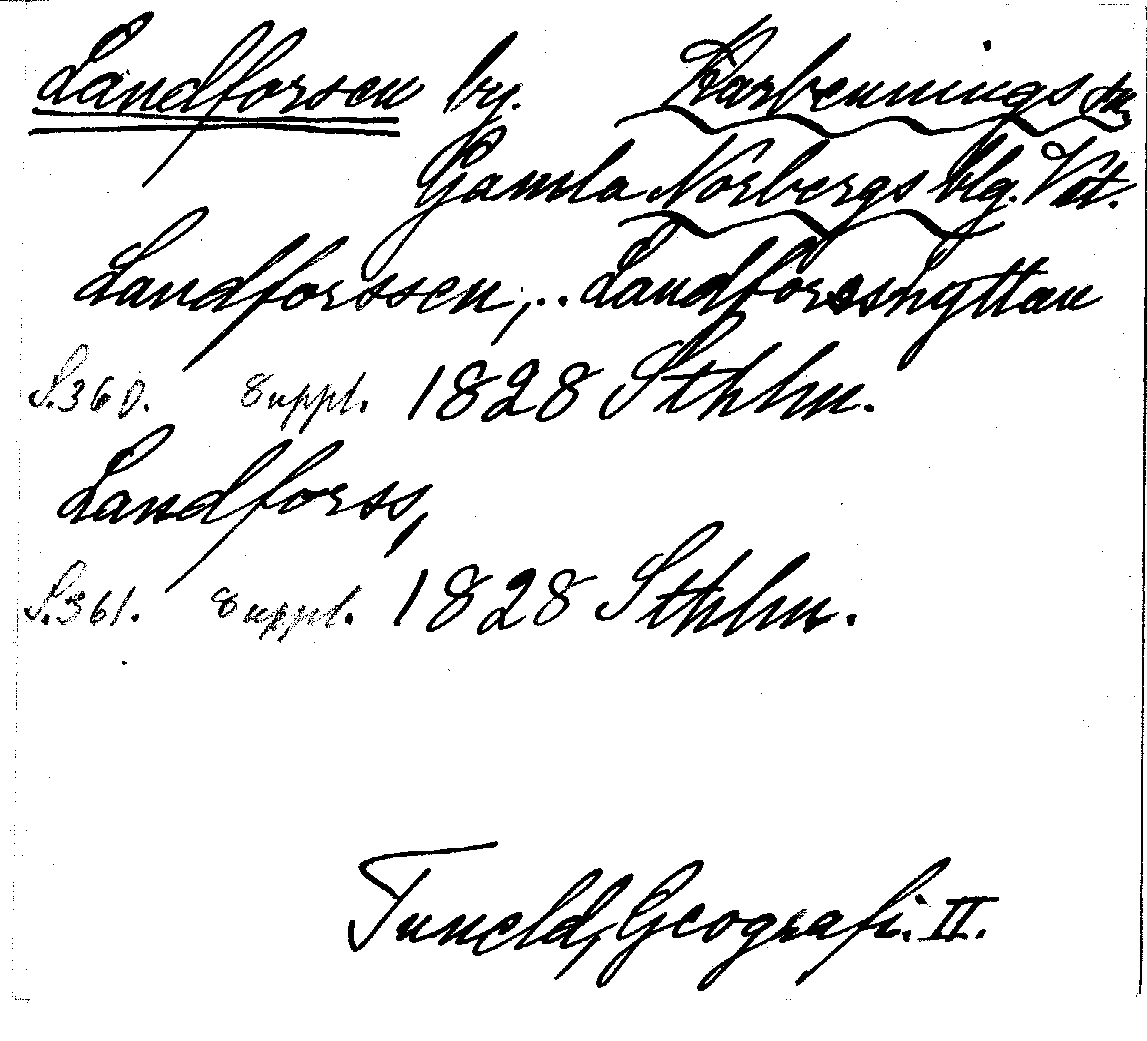 Landforsen by. Karbennings sn
Gamla Norbergs blg. Vst.
Landforssen,.. Landforsshyttan
S.360. Suppl. 1828 Sthlm.
Landforss,
S.361. Suppl. 1828 Sthlm.
Tuneld, Geografi. II.